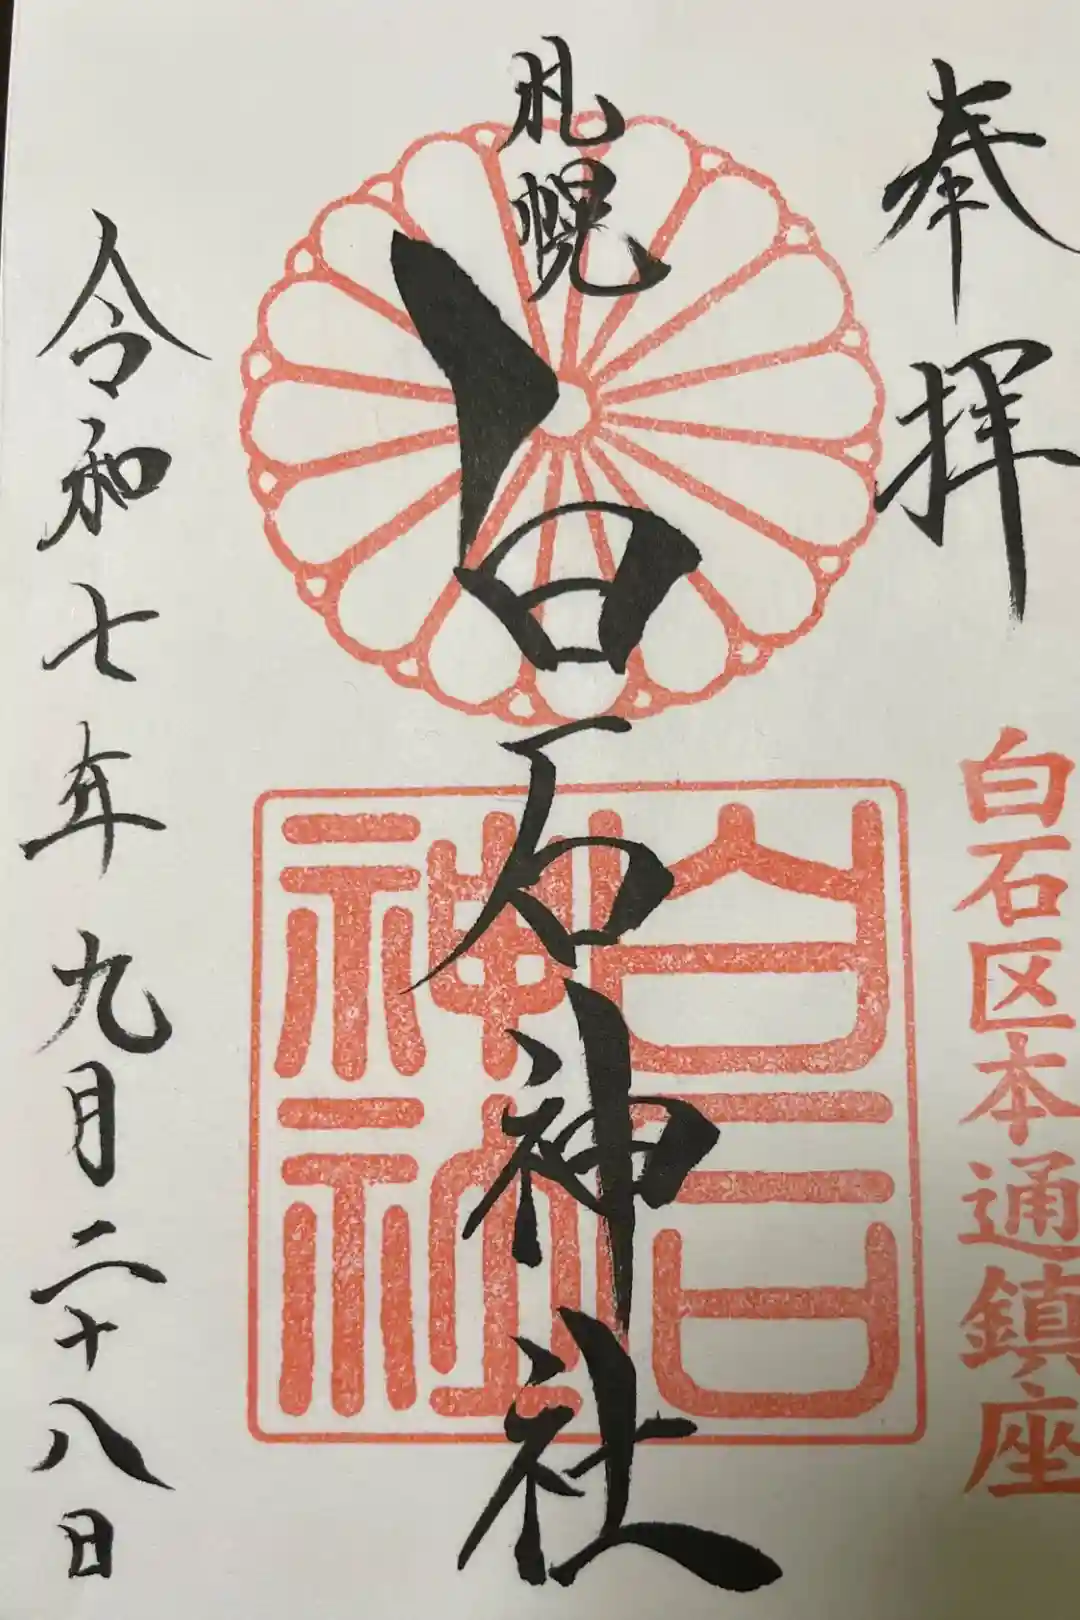 奉拝
白石区本通鎮座
札幌
白石神社
白石神社
令和七年九月二十八日